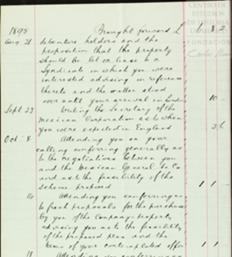 1895 Brought forward £ 1 8 2
Aug 21 debenture holders and the
proposition that the property
should be let on lease to a
Syndicate in which you were
interested advising in reference
thereto and the matter stood
over until your arrival in London 10
Sept 23 Writing the Secretary of the
Mexican Corporation as to when
you were expected in England
Oct 8 Attending you on your
calling conferring generally as
to the negotiations between you
and the Mexican General Co
and as to the feasibility of the
scheme proposed 1 1
10 Attending you conferring as
to proposals for the purchase
by you of the Company's property
advising you as to the feasibility
of the proposed plan and the
terms of your contemplated offer 1 1
18 Attending you